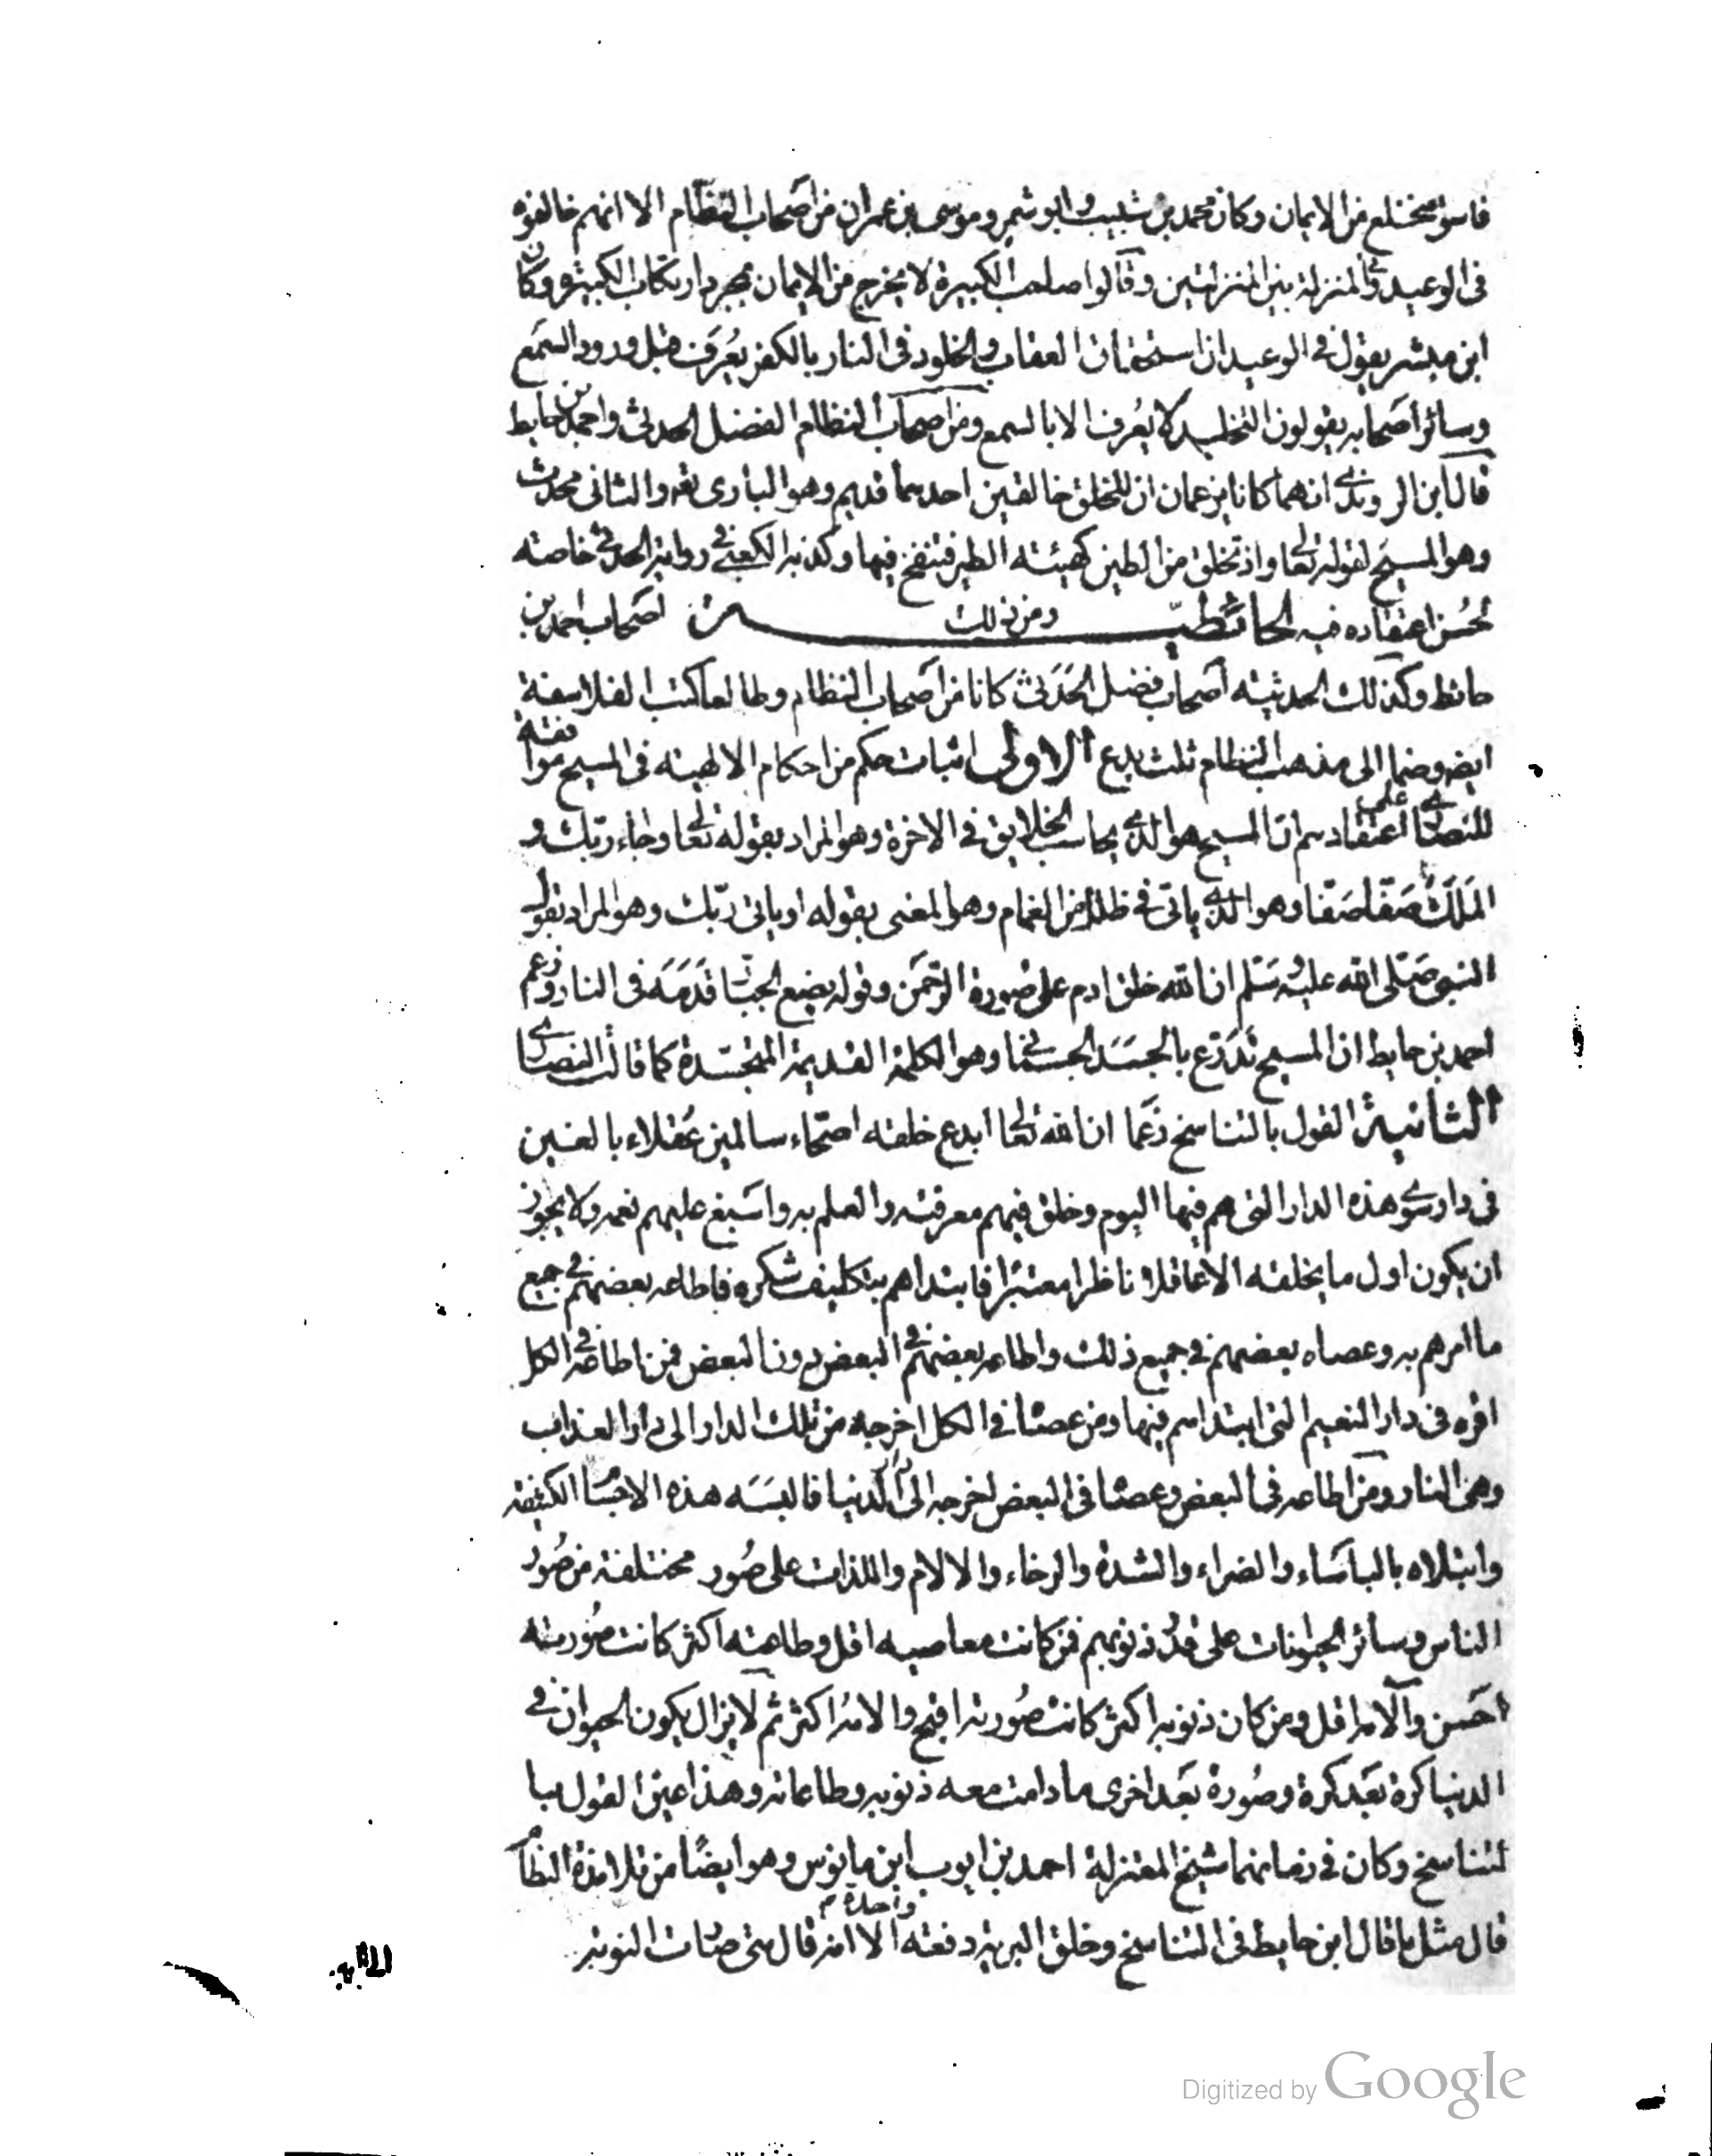 فاسق مختلع من الايمان وكان محمد بن شبيب وابو شمر وموسى بن عمران من اصحاب النظام الا انهم خالفوه
فى الوعيد وفى المنزلة بين المنزلتين وقالوا صاحب الكبيرة لا يخرج من الايمان بمجرد ارتكاب الكبيرة وكان
ابن مبشر يقول فى الوعيد ان استحقاق العقاب والخلود فى النار بالكفر يُعرَف قبل ورود السمع
وسائر اصحابه يقولون التخليد لا يُعرف الا بالسمع ومن اصحاب النظام الفضل الحدثى واحمد بن حابط
قال ابن الروندى انهما كانا يزعمان ان للخلق خالقين احدهما قديم وهو البارى تعه والثانى محدث
وهو المسيح لقوله تعالى واذ تخلق من الطين كهيئة الطير فتنفخ فيها وكذبه الكعبى فى رواية الحدثى خاصة
لحُسن اعتقاده فيه ومن ذلك الحائطيــة من اصحاب احمد بن
حائط وكذلك الحدثية اصحاب فضل الحَدَثى كانا من اصحاب النظام وطالعا كتب الفلاسفة
ايضا وضما الى مذهب النظام ثلث بدع الاولى اثبات حكم من احكام الالهية فى المسيح موافقة
للنصارى على اعتقادهم ان المسيح هو الذى يحاسب الخلايق فى الاخرة وهو المراد بقوله تعالى وجاء ربّك و
المَلَكُ صَفّا صَفّا وهو الذى ياتى فى ظلل من الغمام وهو المعنى بقوله او ياتى ربّك وهو المراد بقول
النبى صَلّى الله عليه وسَلّم ان الله خلق ادم على صُورة الرّحمَن وقوله يضع الجبّار قَدَمَه فى النار وزعم
احمد بن حابط ان المسيح تَدَرّع بالجسَد الجسمانى وهو الكلمة القديمة المتجسّدة كما قالت النصارى
الثانية القول بالتناسخ زَعَما ان الله تعالى ابدع خلقه اصحّاء سالمين عُقلاء بالغين
فى دار سوى هذه الدار التى هم فيها اليوم وخلق فيهم معرفته والعلم به واسَبغ عليهم نعمه ولا يجوز
ان يكون اول ما يخلقه الا عاقلا ناظرا معتبرا فابتداهم بتكليف شكره فاطاعه بعضهم فى جميع
ما امرهم به وعصاه بعضهم فى جميع ذلك واطاعه بعضهم فى البعض دون البعض فمن اطاعه فى الكل
اقره فى دار النعيم التى ابتداهم فيها ومن عصاه فى الكل اخرجه من تلك الدار الى دار العذاب
وهى النار ومن اطاعه فى البعض وعصاه فى البعض اخرجه الى دار الدنيا فالبسَه هذه الاجسام الكثيفة
وابتلاه بالباسَاء والضراء والشدة والرخاء والالام واللذات على صُور مختلفة من صُور
الناس وسائر الحيوانات على قدر ذنوبهم فمن كانت معاصيه اقل وطاعته اكثر كانت صُورته
احَسن والامه اقل ومن كان ذنوبه اكثر كانت صُورته اقبح والامُه اكثر ثم لا يزال يكون الحيوان فى
الدنيا كرة بعَد كرة وصُورة بعَد اخرى ما دامت معه ذنوبه وطاعاته وهذا عين القول با
لتناسخ وكان فى زمانهما شيخ المعتزلة احمد بن ايوب ابن مانوس وهو ايضًا من تلامذة النظام
قال مثل ما قال ابن حابط فى التناسخ وخلق البرية دفعة واحدة الا انه قال متى صارت النوبة
Digitized by Google